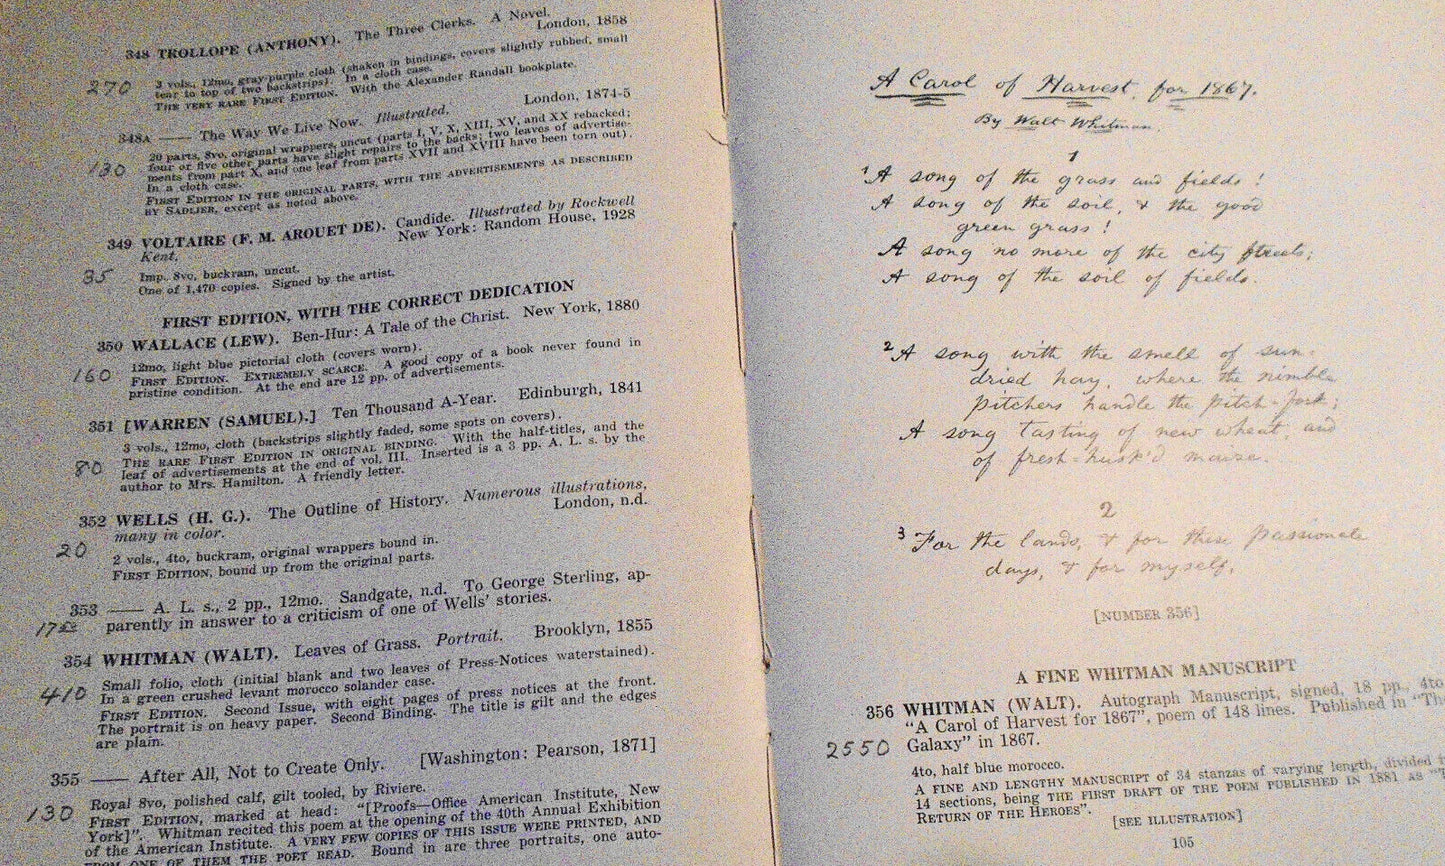 348 TROLLOPE (ANTHONY). The Three Clerks. A Novel.
London, 1858
270
3 vols., 12mo, gray-purple cloth (shaken in bindings, covers slightly rubbed, small
tear to top of two backstrips). In a cloth case.
THE VERY RARE FIRST EDITION. With the Alexander Randall bookplate.
348A —— The Way We Live Now. Illustrated.
London, 1874-5
130
20 parts, 8vo, original wrappers, uncut (parts I, V, X, XIII, XV, and XX rebacked;
four or five other parts have slight repairs to the backs; two leaves of advertise-
ments from part X, and one leaf from parts XVII and XVIII have been torn out).
In a cloth case.
FIRST EDITION IN THE ORIGINAL PARTS, WITH THE ADVERTISEMENTS AS DESCRIBED
BY SADLIER, except as noted above.
349 VOLTAIRE (F. M. AROUET DE). Candide. Illustrated by Rockwell
Kent.
New York: Random House, 1928
35
Imp. 8vo, buckram, uncut.
One of 1,470 copies. Signed by the artist.
FIRST EDITION, WITH THE CORRECT DEDICATION
350 WALLACE (LEW). Ben-Hur: A Tale of the Christ. New York, 1880
160
12mo, light blue pictorial cloth (covers worn).
FIRST EDITION. EXTREMELY SCARCE. A good copy of a book never found in
pristine condition. At the end are 12 pp. of advertisements.
351 [WARREN (SAMUEL).] Ten Thousand A-Year. Edinburgh, 1841
80
3 vols., 12mo, cloth (backstrips slightly faded, some spots on covers).
THE RARE FIRST EDITION IN ORIGINAL BINDING. With the half-titles, and the
leaf of advertisements at the end of vol. III. Inserted is a 3 pp. A. L. s. by the
author to Mrs. Hamilton. A friendly letter.
352 WELLS (H. G.). The Outline of History. Numerous illustrations,
many in color.
London, n.d.
20
2 vols., 4to, buckram, original wrappers bound in.
FIRST EDITION, bound up from the original parts.
353 —— A. L. s., 2 pp., 12mo. Sandgate, n.d. To George Sterling, ap-
parently in answer to a criticism of one of Wells' stories.
17 50
354 WHITMAN (WALT). Leaves of Grass. Portrait. Brooklyn, 1855
410
Small folio, cloth (initial blank and two leaves of Press-Notices waterstained).
In a green crushed levant morocco solander case.
FIRST EDITION. Second Issue, with eight pages of press notices at the front.
The portrait is on heavy paper. Second Binding. The title is gilt and the edges
are plain.
355 —— After All, Not to Create Only. [Washington: Pearson, 1871]
130
Royal 8vo, polished calf, gilt tooled, by Riviere.
FIRST EDITION, marked at head: "[Proofs—Office American Institute, New
York]". Whitman recited this poem at the opening of the 40th Annual Exhibition
of the American Institute. A VERY FEW COPIES OF THIS ISSUE WERE PRINTED, AND
FROM ONE OF THEM THE POET READ. Bound in are three portraits, one auto-
A Carol of Harvest, for 1867.
By Walt Whitman.
1
1 A song of the grass and fields!
A song of the soil, & the good
green grass!
A song no more of the city streets;
A song of the soil of fields.
2 A song with the smell of sun-
dried hay, where the nimble
pitchers handle the pitch-fork;
A song tasting of new wheat, and
of fresh-husk'd maize.
2
3 For the lands, & for these passionate
days, & for myself,
[NUMBER 356]
A FINE WHITMAN MANUSCRIPT
356 WHITMAN (WALT). Autograph Manuscript, signed, 18 pp., 4to
"A Carol of Harvest for 1867", poem of 148 lines. Published in "Th
Galaxy" in 1867.
2550
4to, half blue morocco.
A FINE AND LENGTHY MANUSCRIPT of 34 stanzas of varying length, divided
14 sections, being THE FIRST DRAFT OF THE POEM PUBLISHED IN 1881 AS "T
RETURN OF THE HEROES".
[SEE ILLUSTRATION]
105